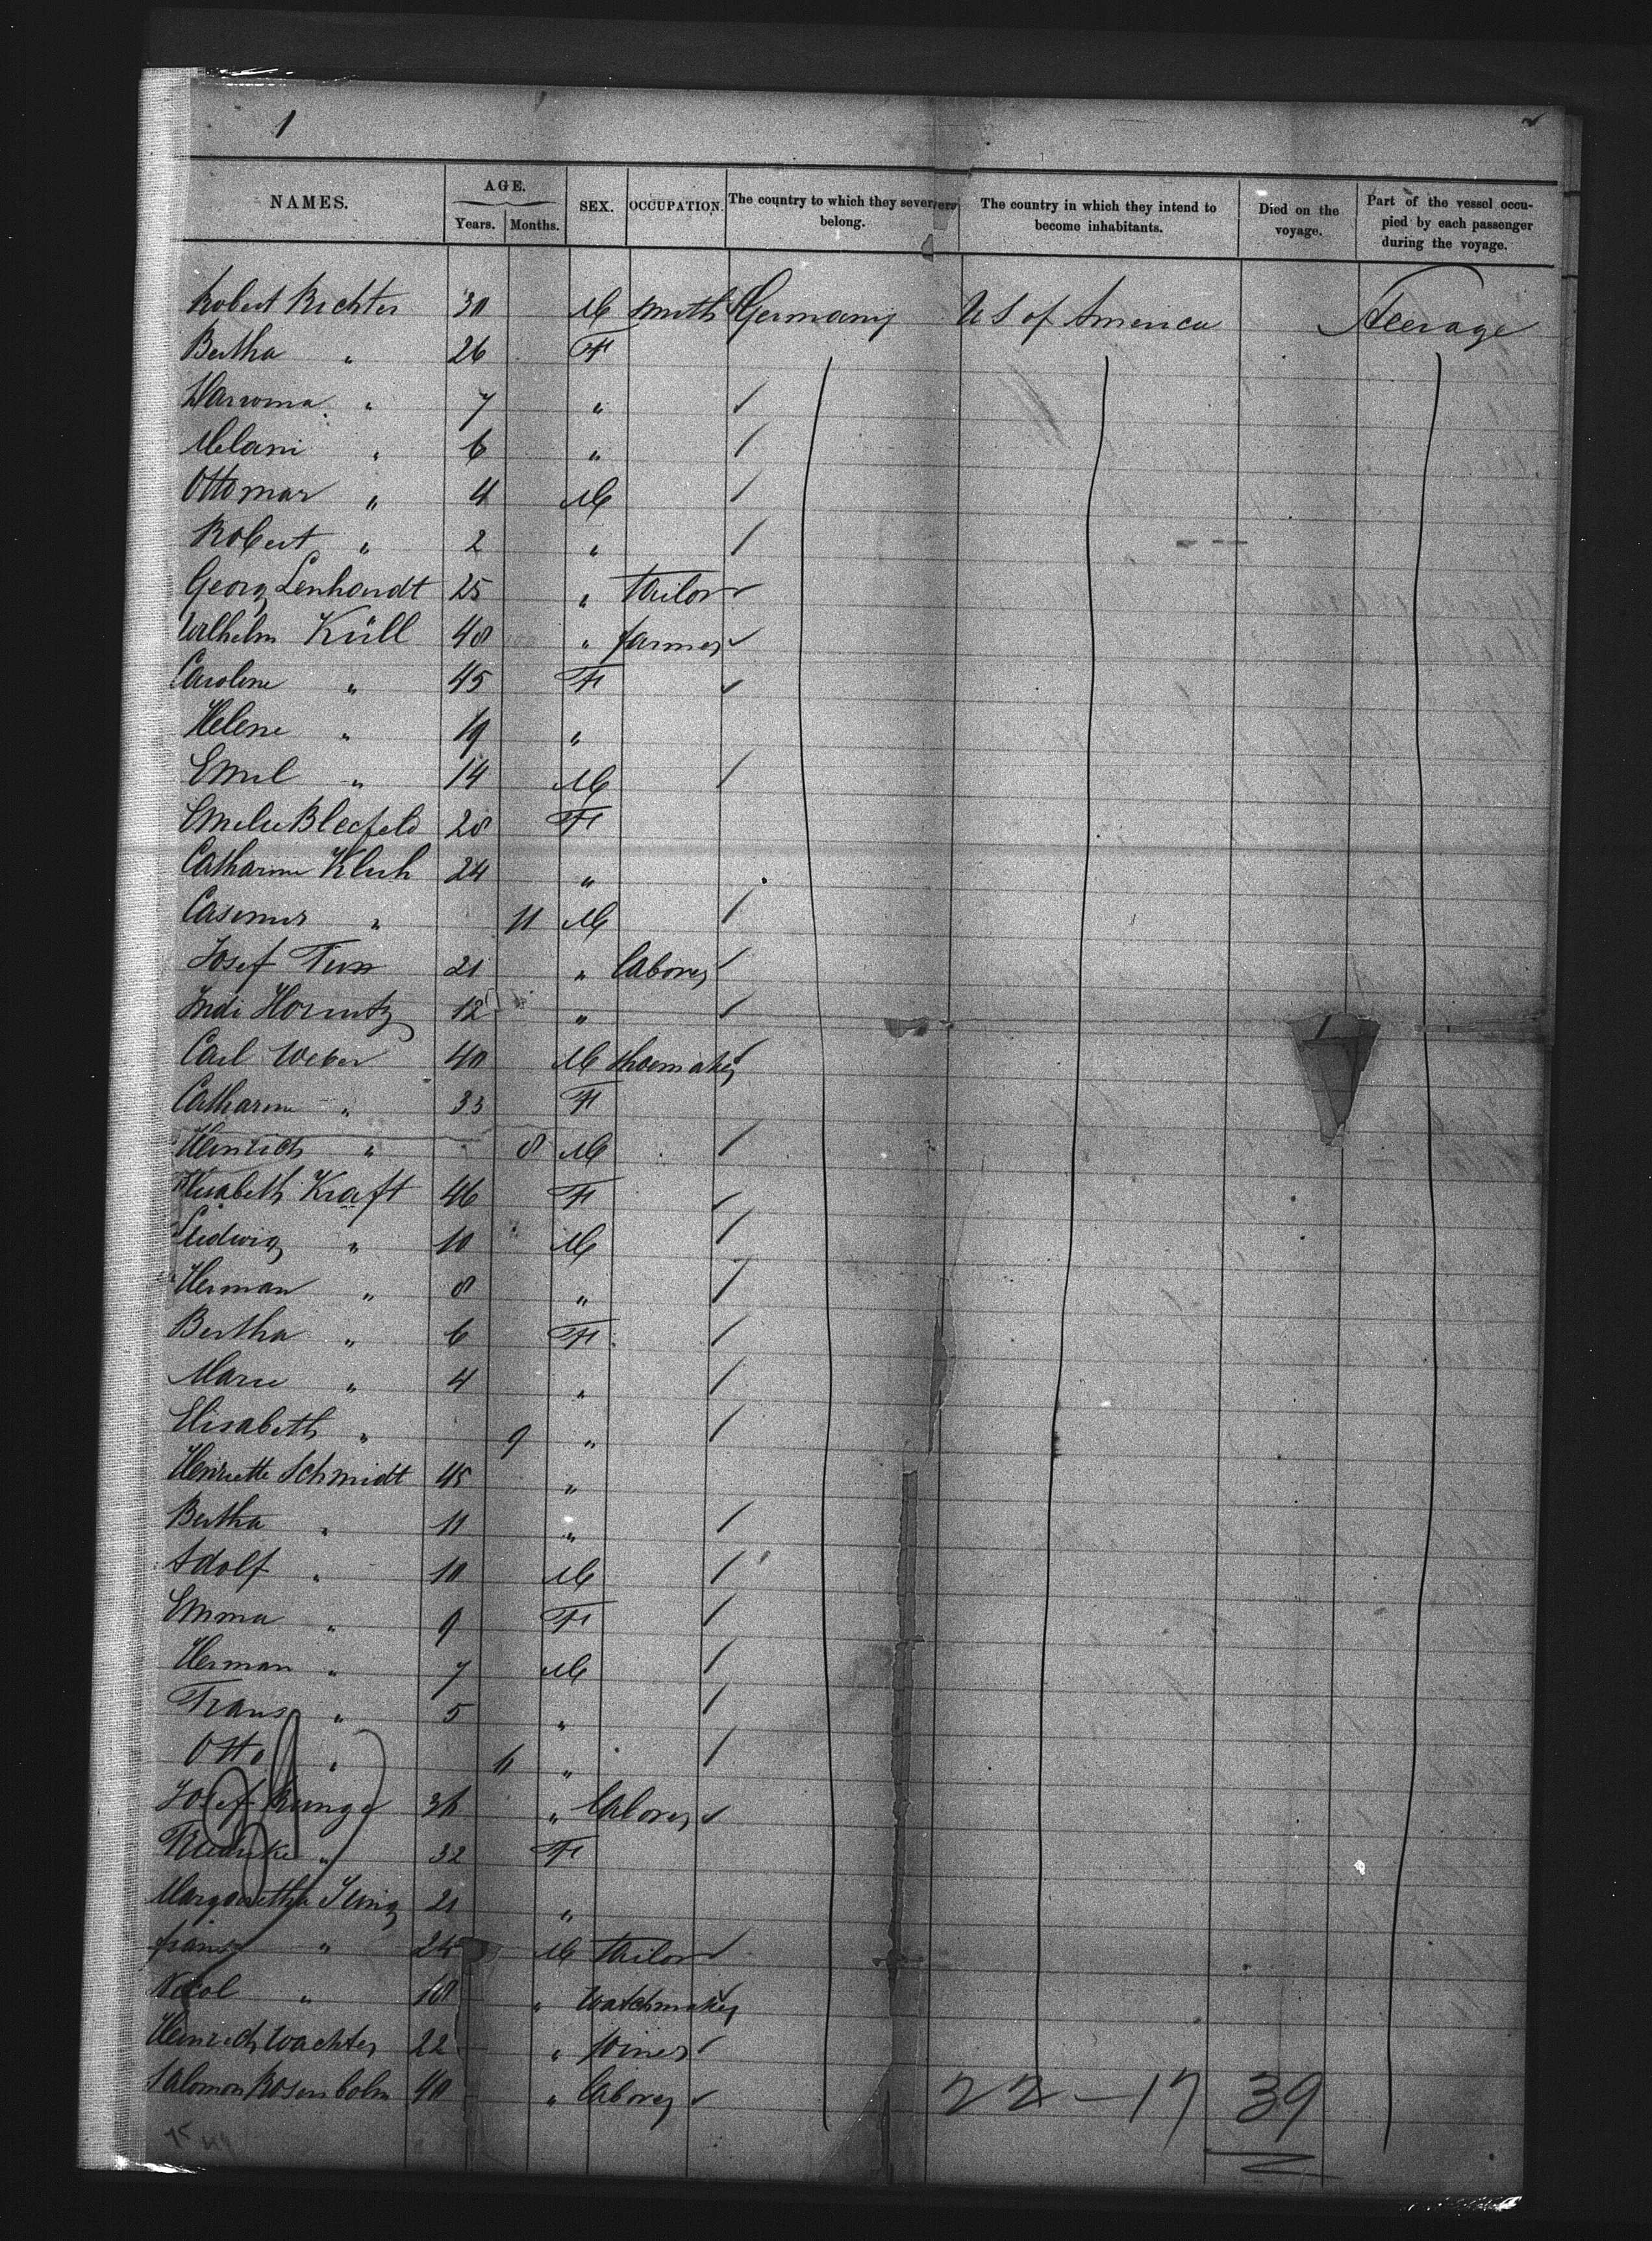 1
NAMES. AGE. Years. Months. SEX. OCCUPATION. The country to which they severally belong. The country in which they intend to become inhabitants. Died on the voyage. Part of the vessel occupied by each passenger during the voyage.
Robert Richter 30 M smith Germany U S of America Steerage
Bertha " 26 F
" 7 "
Melani " 6 "
Ottomar " 4 M
Robert " 2 "
Georg Lenhardt 25 " tailor
Wilhelm Küll 48 " farmer
Caroline " 45 F
Helene " 19 "
Emil " 14 M
Emilie Blecfeld 28 F
Catharine Kluh 24 "
Casimir " 11 M
Josef 21 " laborer
12 "
Carl Weber 40 M shoemaker
Catharine " 33 F
Heinrich " 8 M
Elisabeth Kraft 46 F
Ludwig " 10 M
Herman " 8 "
Bertha " 6 F
Marie " 4 "
Elisabeth " 9 "
Henriette Schmidt 45 "
Bertha " 11 "
Adolf " 10 M
Emma " 9 F
Herman " 7 M
Franz " 5 "
Otto " "
Josef Runge 36 " laborer
Friedrike " 32 F
Margaretha 21 "
Franz " 24 M tailor
Nicol " 18 " watchmaker
Heinrich Wachter 22 " joiner
Salomon Rosenbohm 40 " laborer
22 - 17 39